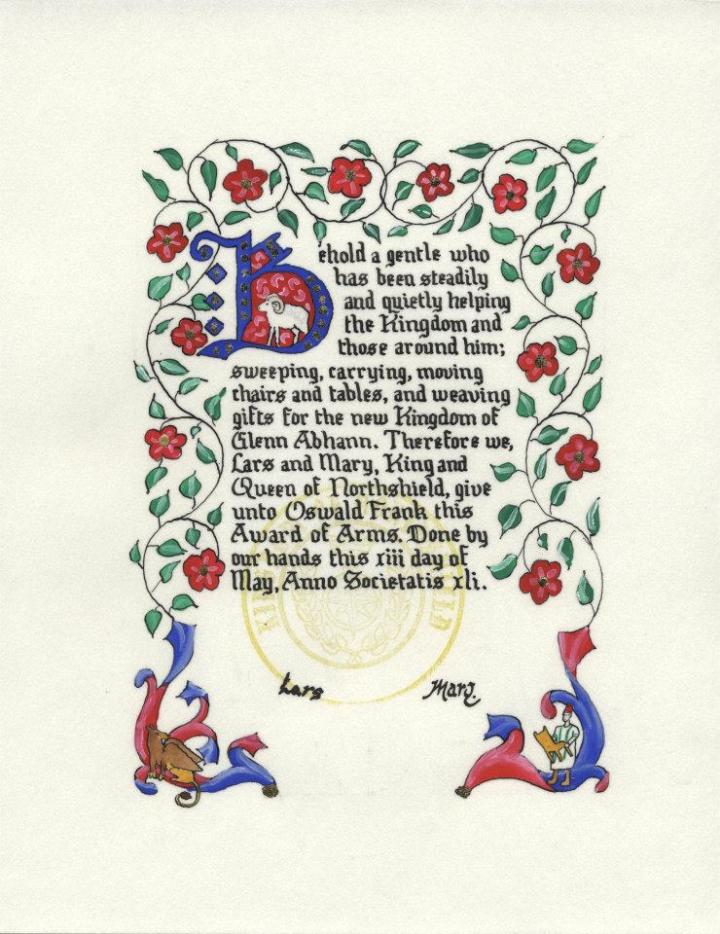 Behold a gentle who
has been steadily
and quietly helping
the Kingdom and
those around him;
sweeping, carrying, moving
chairs and tables, and weaving
gifts for the new Kingdom of
Glenn Abhann. Therefore we,
Lars and Mary, King and
Queen of Northshield, give
unto Oswald Frank this
Award of Arms. Done by
our hands this xiii day of
May, Anno Societatis xli.
Lars Mary.